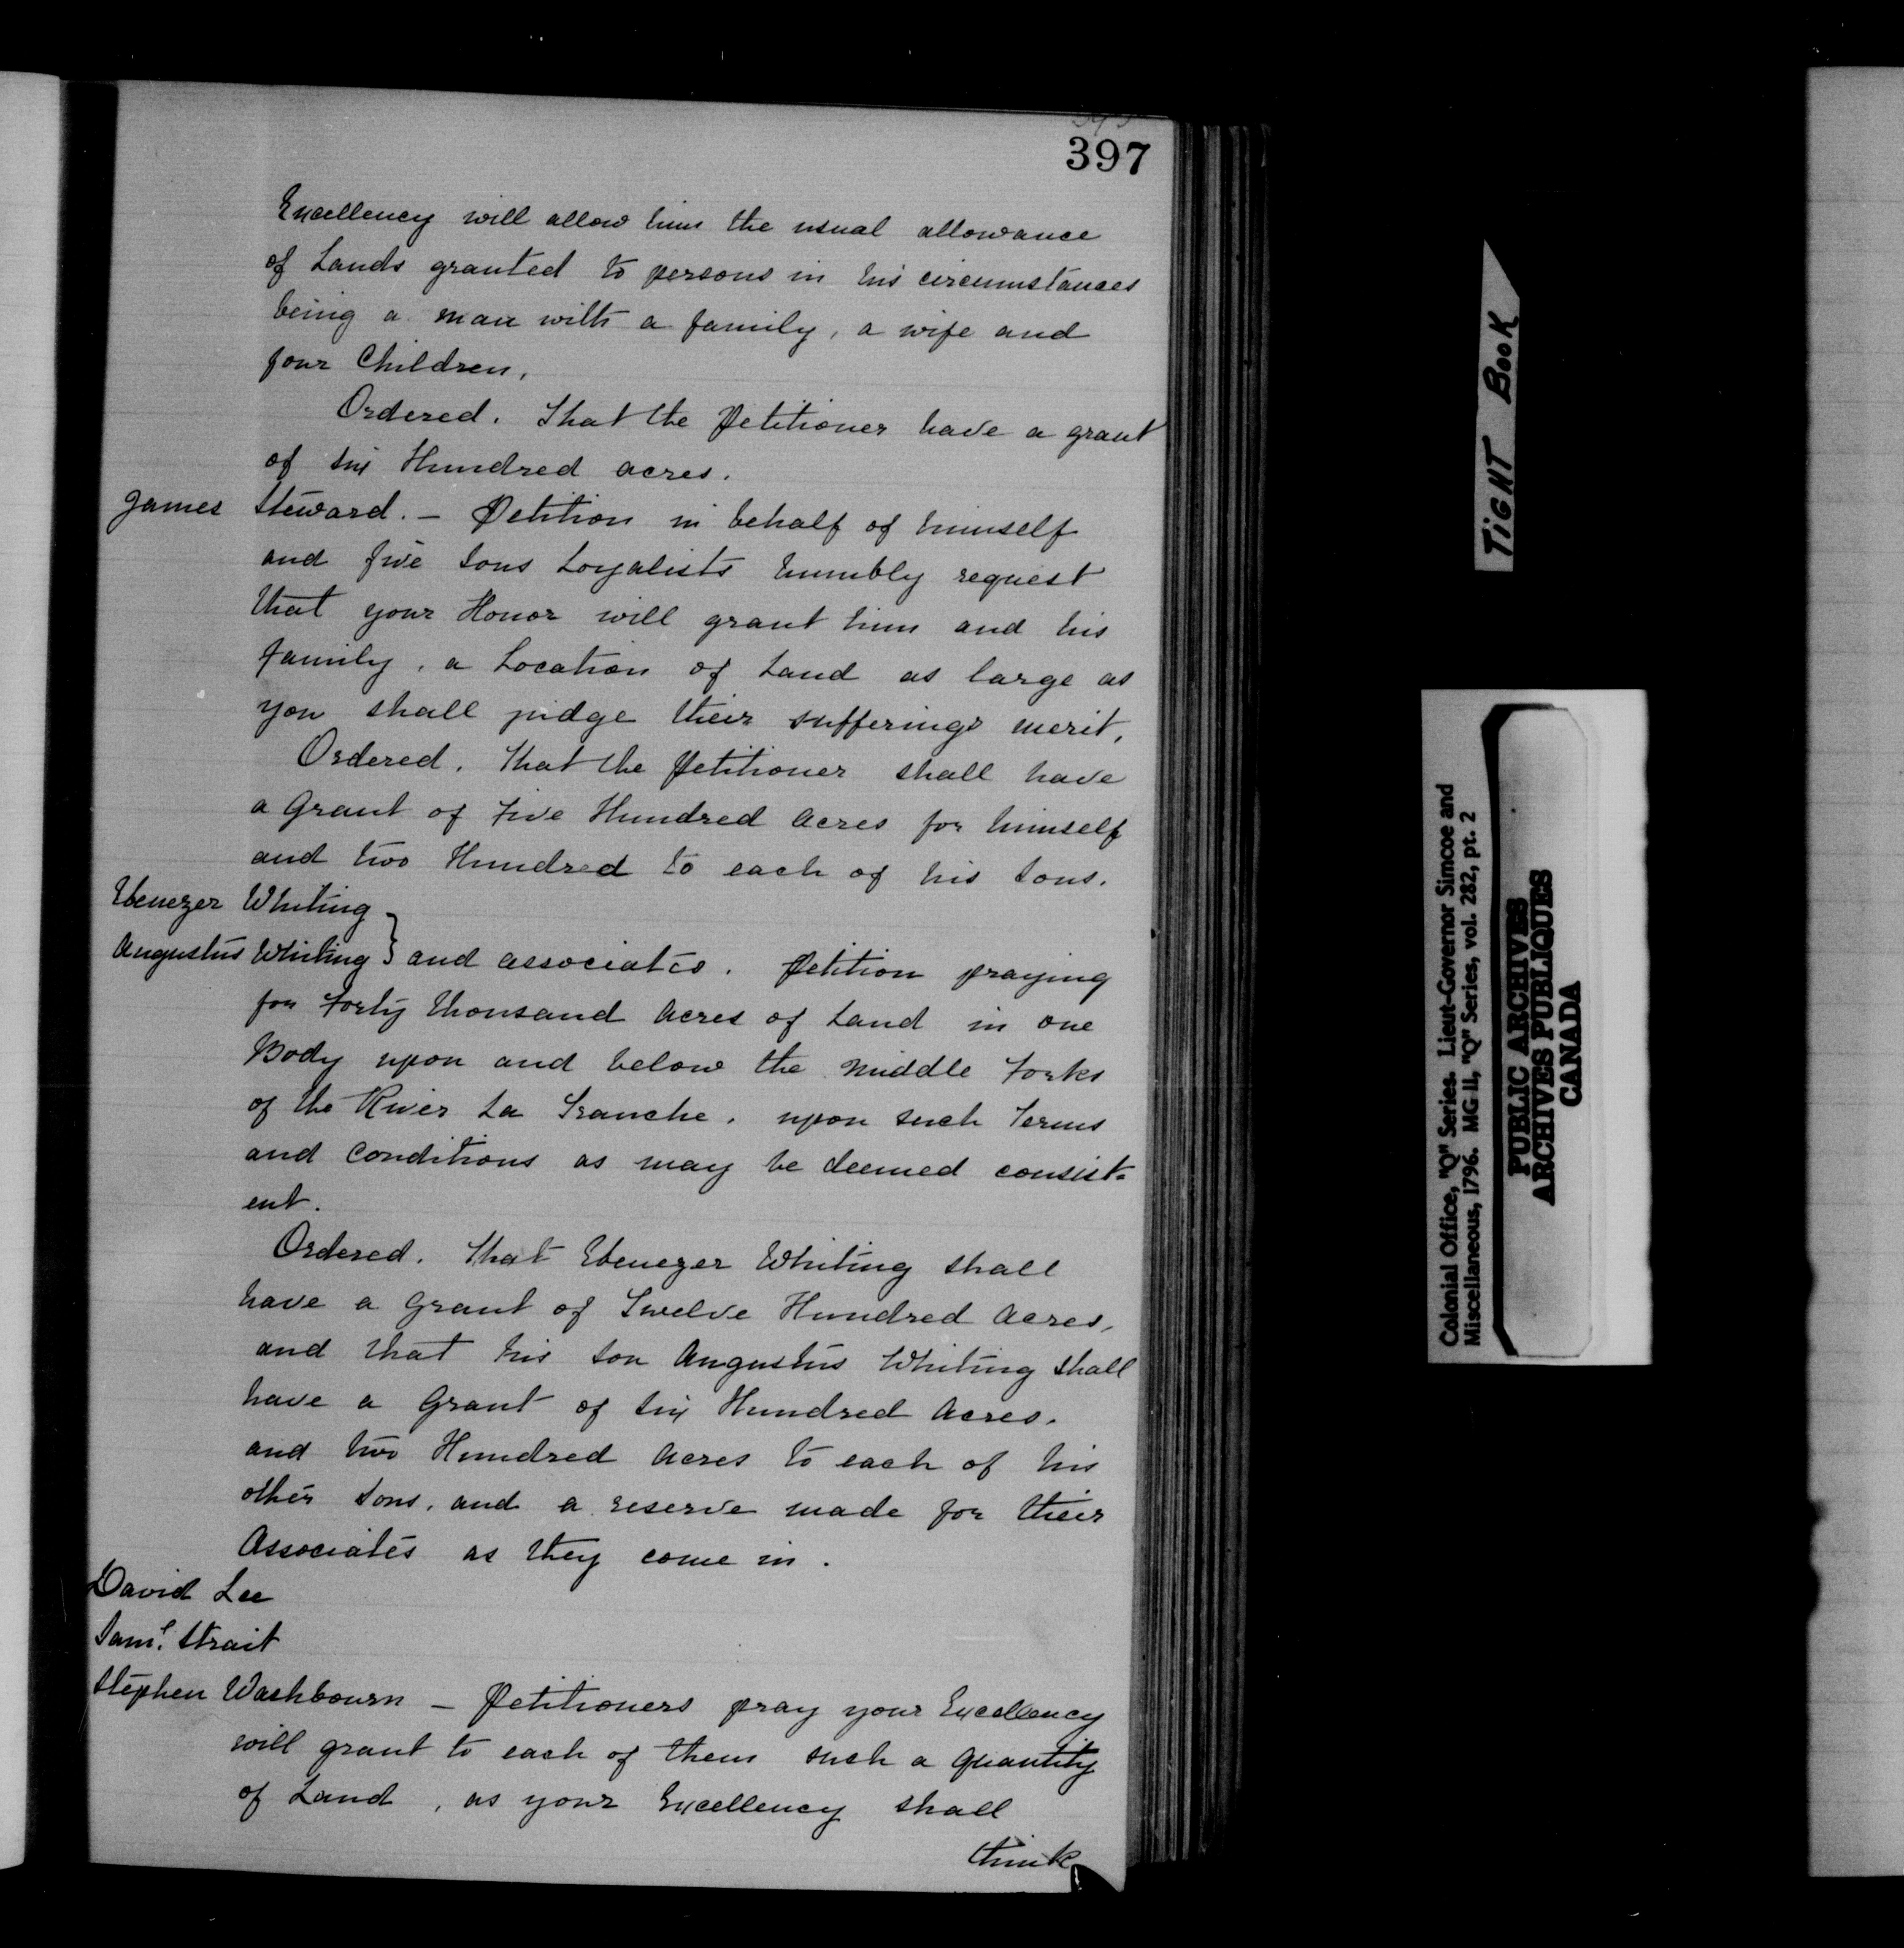 397
Excellency will allow him the usual allowance
of Lands granted to persons in his circumstances
being a man with a family, a wife and
four Children.
Ordered. That the Petitioner have a grant
of six Hundred acres.
James Steward. — Petition in behalf of himself
and five sons Loyalists humbly request
that your Honor will grant him and his
family, a Location of Land as large as
you shall judge their sufferings merit.
Ordered. That the Petitioner shall have
a Grant of Five Hundred Acres for himself
and two Hundred to each of his Sons.
Ebenezer Whiting
Augustus Whiting } and associates. Petition praying
for Forty thousand Acres of Land in one
Body upon and below the middle Forks
of the River La Tranche. upon such Terms
and Conditions as may be deemed consist=
ent.
Ordered. That Ebenezer Whiting shall
have a Grant of Twelve Hundred Acres,
and that his son Augustus Whiting shall
have a Grant of six Hundred Acres.
and two Hundred Acres to each of his
other sons, and a reserve made for their
Associates as they come in.
David Lee
Saml. Strait
Stephen Washbourn — Petitioners pray your Excellency
will grant to each of them such a Quantity
of Land, as your Excellency shall
think
TIGHT BOOK
Colonial Office, "Q" Series. Lieut-Governor Simcoe and
Miscellaneous, 1796. MG 11, "Q" Series, vol. 282, pt. 2
PUBLIC ARCHIVES
ARCHIVES PUBLIQUES
CANADA